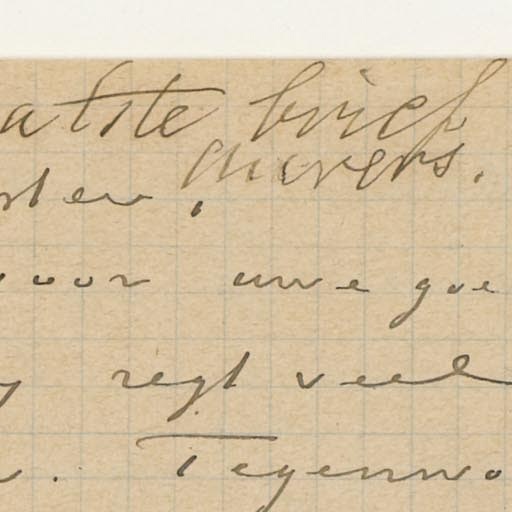 atste brief
Auvers.
sten,
voor uwe goe
y regt veel
. Tegenwo